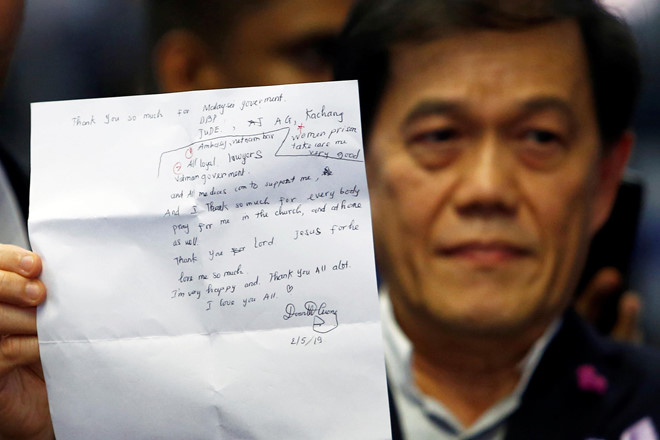 Thank You so much for Malaysia goverment.
DPP
JUDE, I A.G, Kachang
① Embassy, vietnam bar women prison
② All loyal lawyers take care me
vatnam government. very good
and All medias com to support me,
And I Thank so much for every body
pray for me in the church, and at home
as well.
Thank you Lord Jesus for he
love me so much.
I'm very happy and. Thank You All alot.
I love you All. ♡
2/5/19